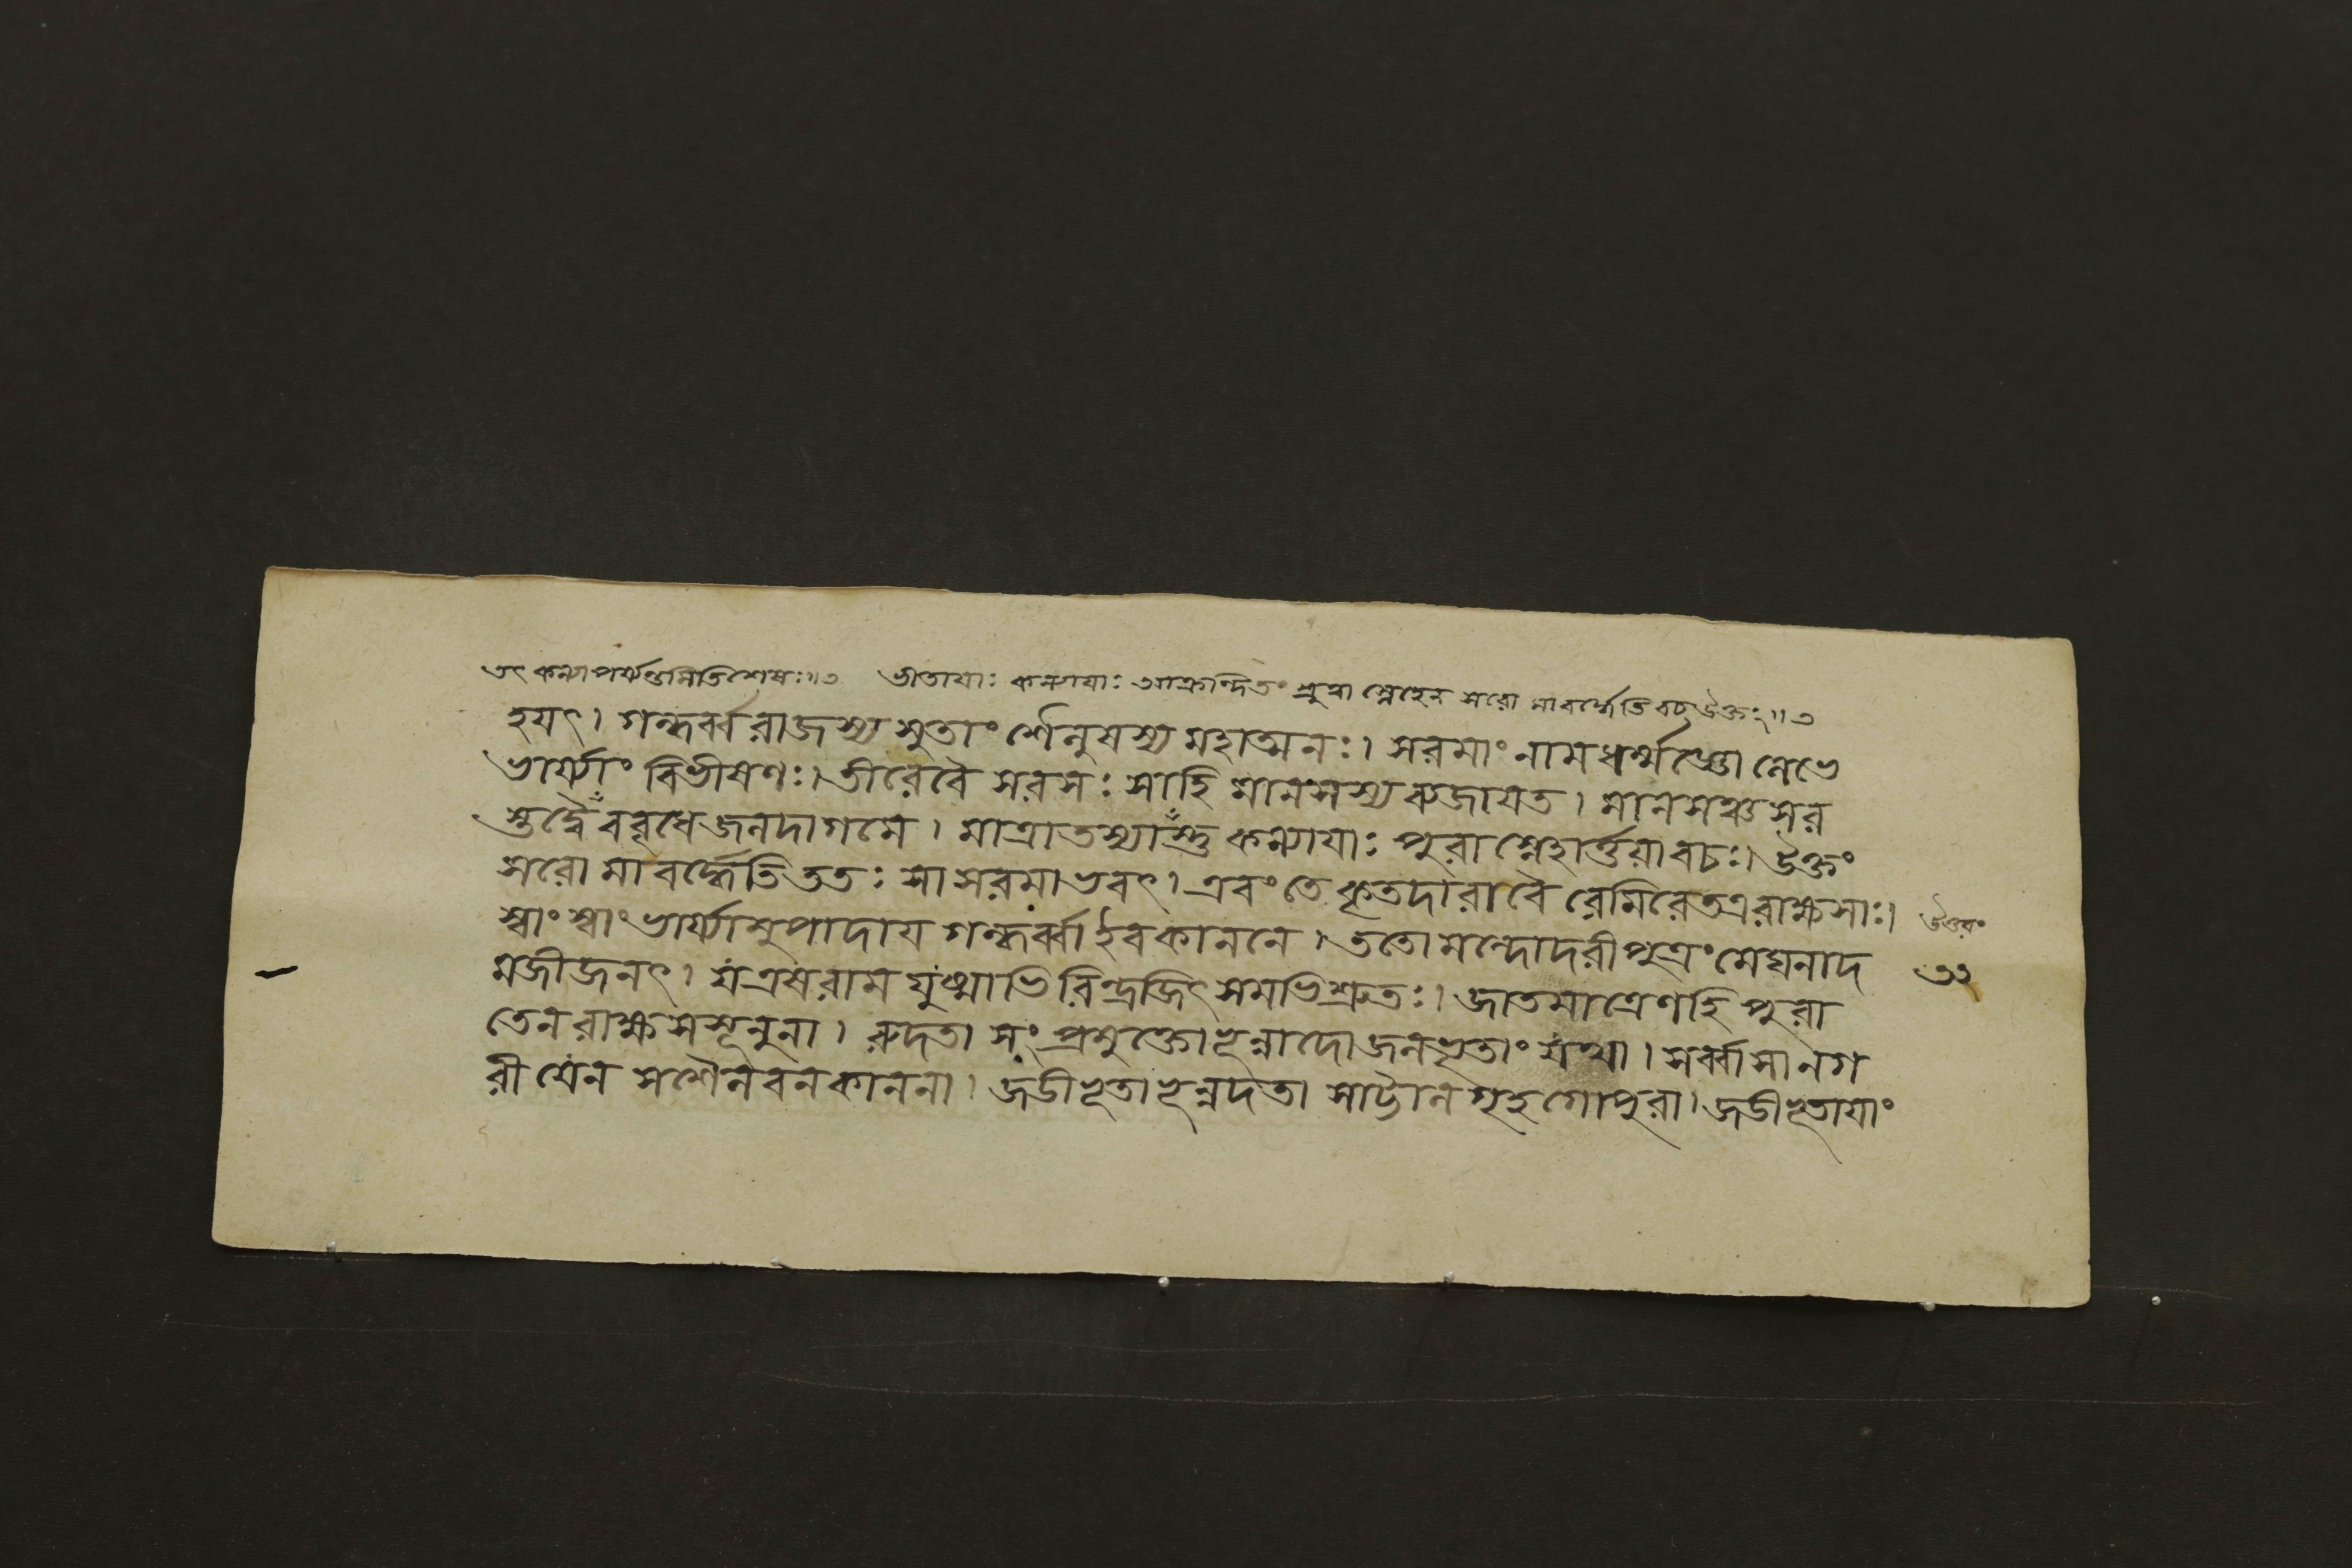 তৎ কন্যাপর্য্যন্তমিতিশেষঃ॥৩ ভীতায়াঃ কন্যায়াঃ আক্রন্দিতং শ্রুত্বা স্নেহেন সরো মাবর্দ্ধেতিবচ উক্তং॥৩
হয়ৎ। গন্ধর্ব্বরাজস্য সুতাং শৈলুষস্য মহাত্মনঃ। সরমাং নামধর্ম্মজ্ঞো লেভে
ভার্য্যাং বিভীষণঃ। তীরেবৈ সরসঃ সাহি মানসস্য ব্যজায়ত। মানসঞ্চ সর
স্তদ্বৈ ববৃধে জলদাগমে। মাত্রাতস্যাস্তু কন্যায়াঃ পুরাস্নেহার্ত্তয়াবচঃ। উক্তং
সরো মাবর্দ্ধেতি ততঃ সা সরমাভবৎ। এবং তে কৃতদারাবৈ রেমিরে তত্র রাক্ষসাঃ।
স্বাং স্বাং ভার্য্যামুপাদায় গন্ধর্ব্বা ইবকাননে। ততো মন্দোদরীপুত্রং মেঘনাদ
উত্তরং
মজীজনৎ। য এষ রাম যুষ্মাভি রিন্দ্রজিৎ সমভিশ্রুতঃ। জাতমাত্রেণহি পুরা
৩২
তেন রাক্ষসসূনুনা। রুদতা সংপ্রমুক্তোভূন্নাদো জলভৃতাং যথা। সর্ব্বাসানগ
রী যেন সশৈলবনকাননা। জড়ীভূতাভূন্নদতা সাট্টালগৃহগোপুরা। জড়ীভূতায়াং